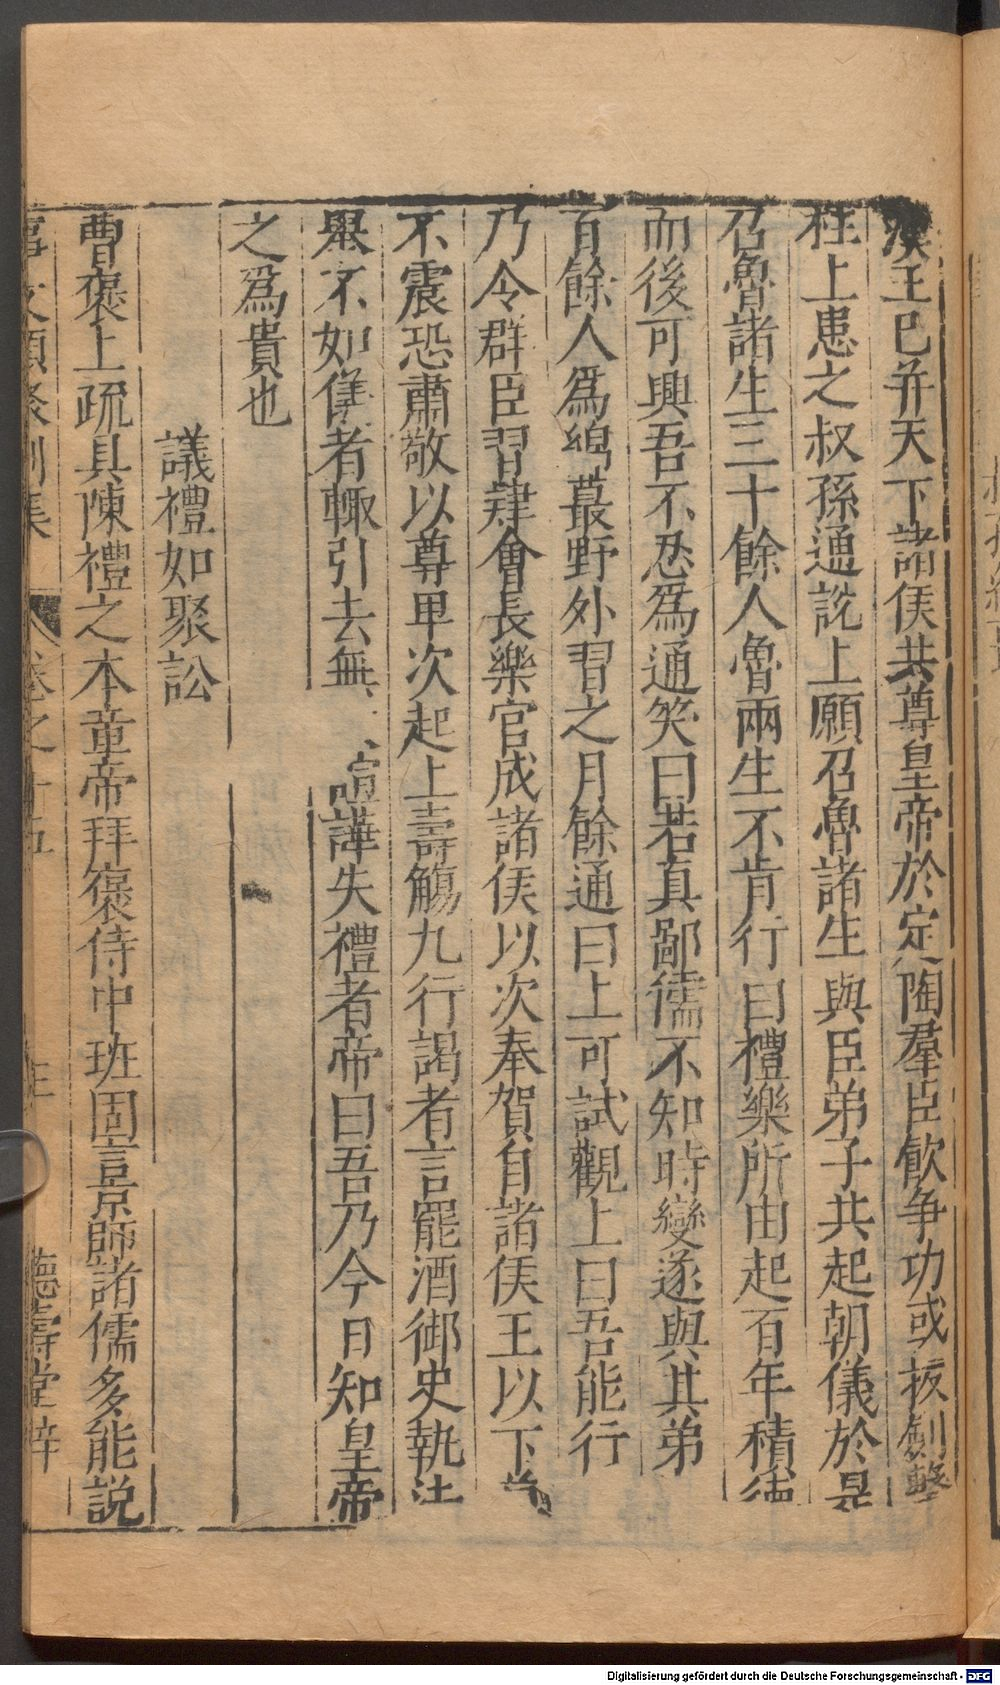 漢王已并天下諸侯共尊皇帝於定陶羣臣飲争功或拔劍擊
柱上患之叔孫通説上願召魯諸生與臣弟子共起朝儀於是
召魯諸生三十餘人魯兩生不肯行曰禮樂所由起百年積德
而後可興吾不忍爲通笑曰若真鄙儒不知時變遂與其弟
百餘人爲綿蕞野外習之月餘通曰上可試觀上曰吾能行
乃令群臣習肄會長樂宫成諸侯以次奉賀自諸侯王以下
不震恐肅敬以尊卑次起上壽觴九行謁者言罷酒御史執法
舉不如儀者輒引去無 諠譁失禮者帝曰吾乃今日知皇帝
之爲貴也
議禮如聚訟
曹褒上疏具陳禮之本章帝拜褒侍中班固言京師諸儒多能説
事文類聚别集 卷之十五 德壽堂梓
Digitalisierung gefördert durch die Deutsche Forschungsgemeinschaft - DFG